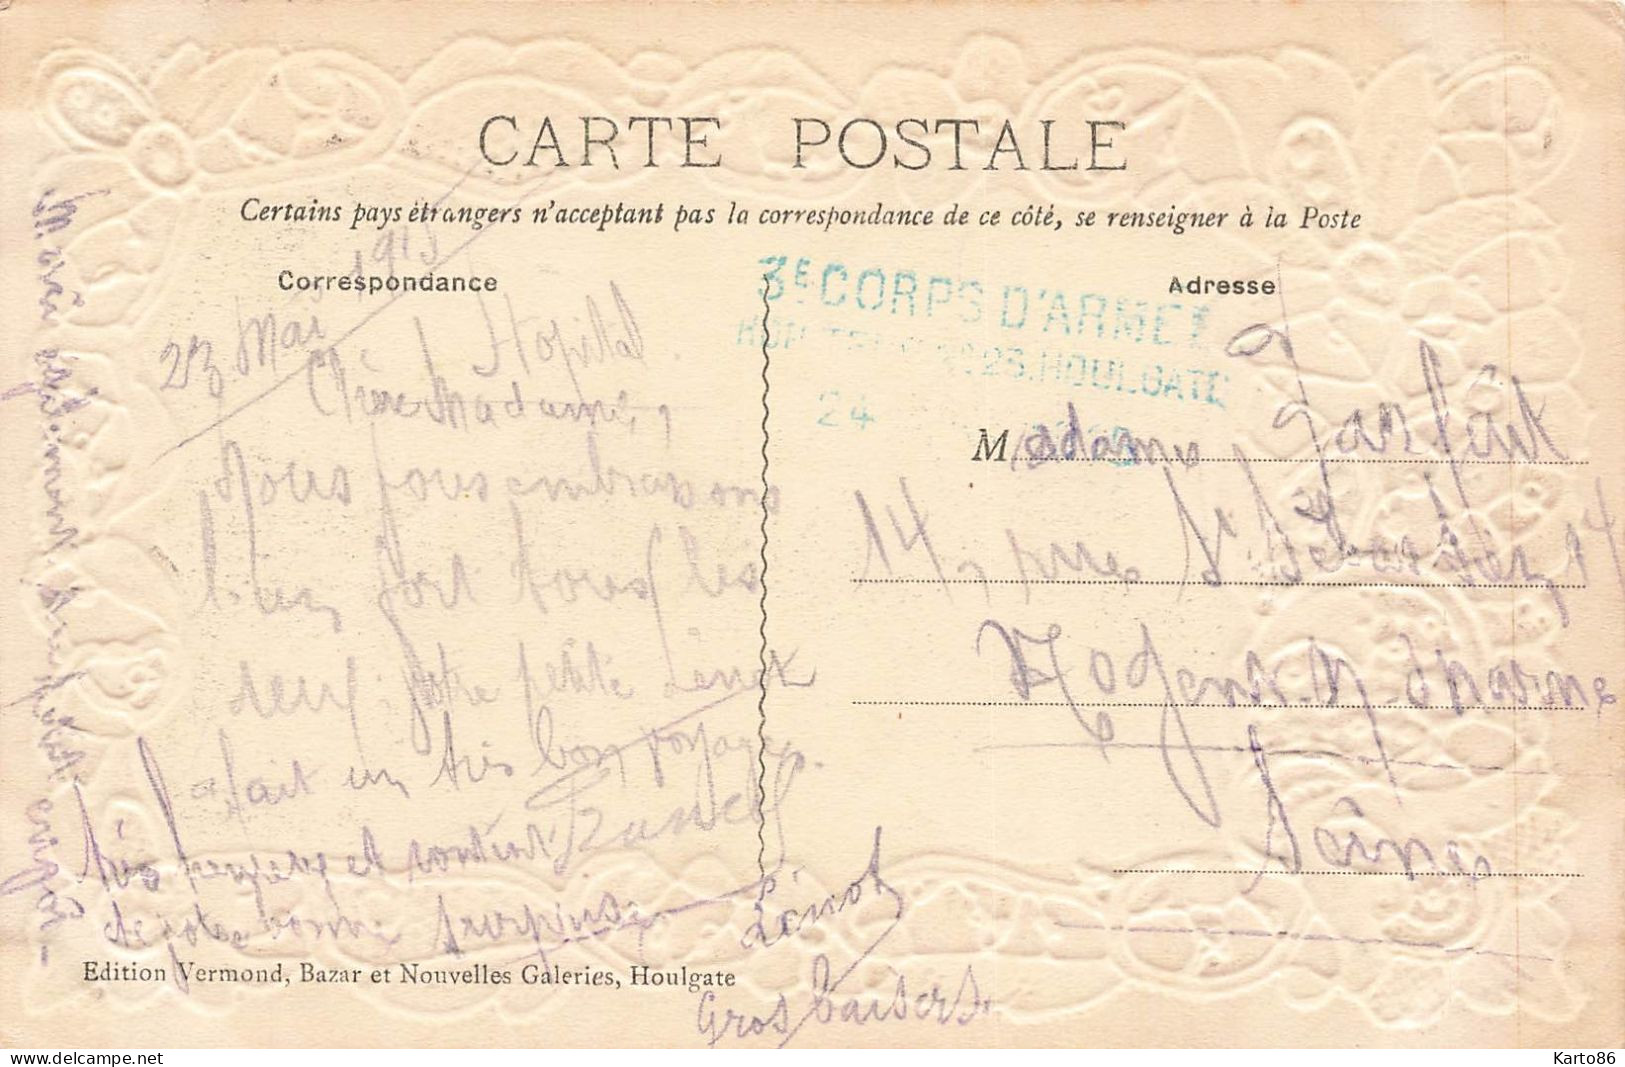 CARTE POSTALE
Certains pays étrangers n'acceptant pas la correspondance de ce côté, se renseigner à la Poste
Correspondance
Adresse
3E CORPS D'ARMÉE
HOULGATE
24
23 Mai 1915
Hopital
Chère Madame,
Nous vous embrassons
bien fort tous les
deux votre petite Lénot
a fait un très bon voyage.
très heureux et content
de votre bonne surprise
Lénot
Gros baisers
Madame Parfait
14, rue St Sébastien, 14
Nogent-s-Marne
Seine
Edition Vermond, Bazar et Nouvelles Galeries, Houlgate
delcampe.net
Karto86